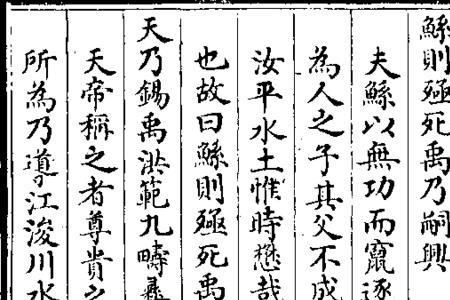 鯀則殛死禹乃嗣興
夫鯀以無功而竄逐
為人之子其父不成
汝平水土惟時懋哉
也故曰鯀則殛死禹
天乃錫禹洪範九疇彝
天帝稱之者尊貴之
所為乃導江浚川水